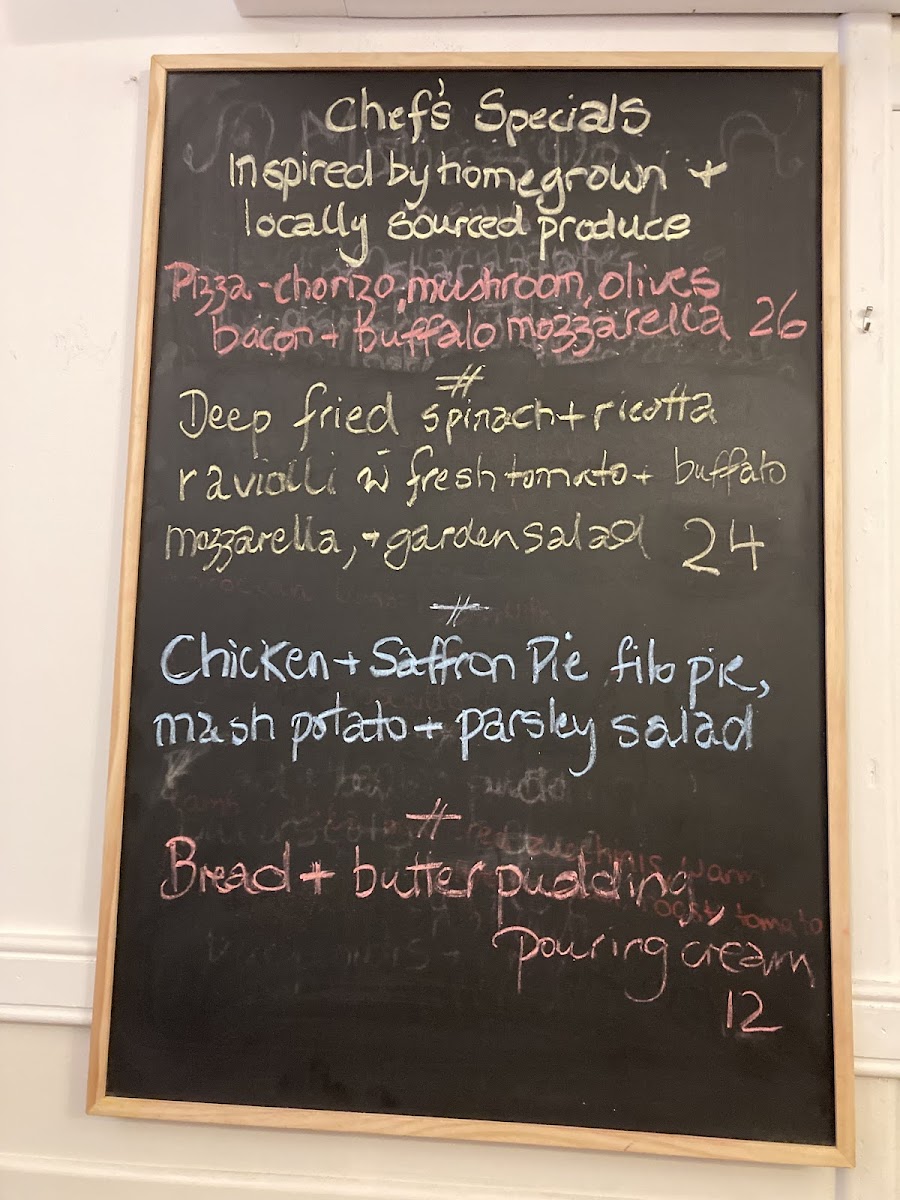 Chef's Specials
Inspired by homegrown +
locally sourced produce
Pizza - chorizo, mushroom, olives
bacon + Buffalo mozzarella 26
#
Deep fried spinach + ricotta
raviolli w fresh tomato + buffalo
mozzarella, + garden salad 24
#
Chicken + Saffron Pie filo pie,
mash potato + parsley salad
#
Bread + butter pudding,
pouring cream
12